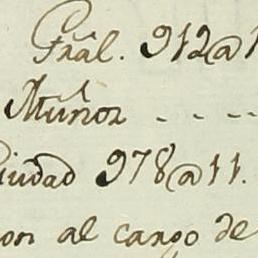 Grāl. 912@1
Muñoz - - - -
Ciudad 978@11.
on al cargo de